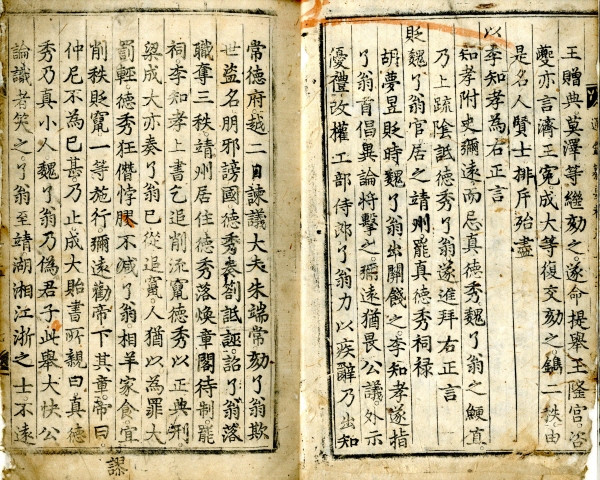 王贈典莫澤等繼劾之遂命提舉王隆宮洛
夔亦言濟王寃成大等復交劾之鐫二秩由
是名人賢士排斥殆盡
以李知孝為右正言
知孝附史彌遠而忌真德秀魏了翁之鯁直
乃上疏陰詆德秀了翁遂進拜右正言
貶魏了翁官居之靖州罷真德秀祠祿
胡夢昱貶時魏了翁出關餞之李知孝遂指
了翁首倡異論將擊之彌遠猶畏公議外示
優禮改權工部侍郎了翁力以疾辭乃出知
常德府越二日諫議大夫朱端常劾了翁欺
世盜名朋邪謗國德秀奏劄詆誣詔了翁落
職奪三秩靖州居住德秀落煥章閣待制罷
祠李知孝上書乞追削流竄德秀以正典刑
梁成大亦奏了翁已從追竄人猶以為罪大
罰輕德秀狂僭悖不減了翁相羊家食宜
削秩貶竄一等施行彌遠勸帝下其章帝曰
仲尼不為已甚乃止成大貽書所親曰真德
秀乃真小人魏了翁乃偽君子此舉大快公
論識者笑之了翁至靖湖湘江浙之士不遠
謬